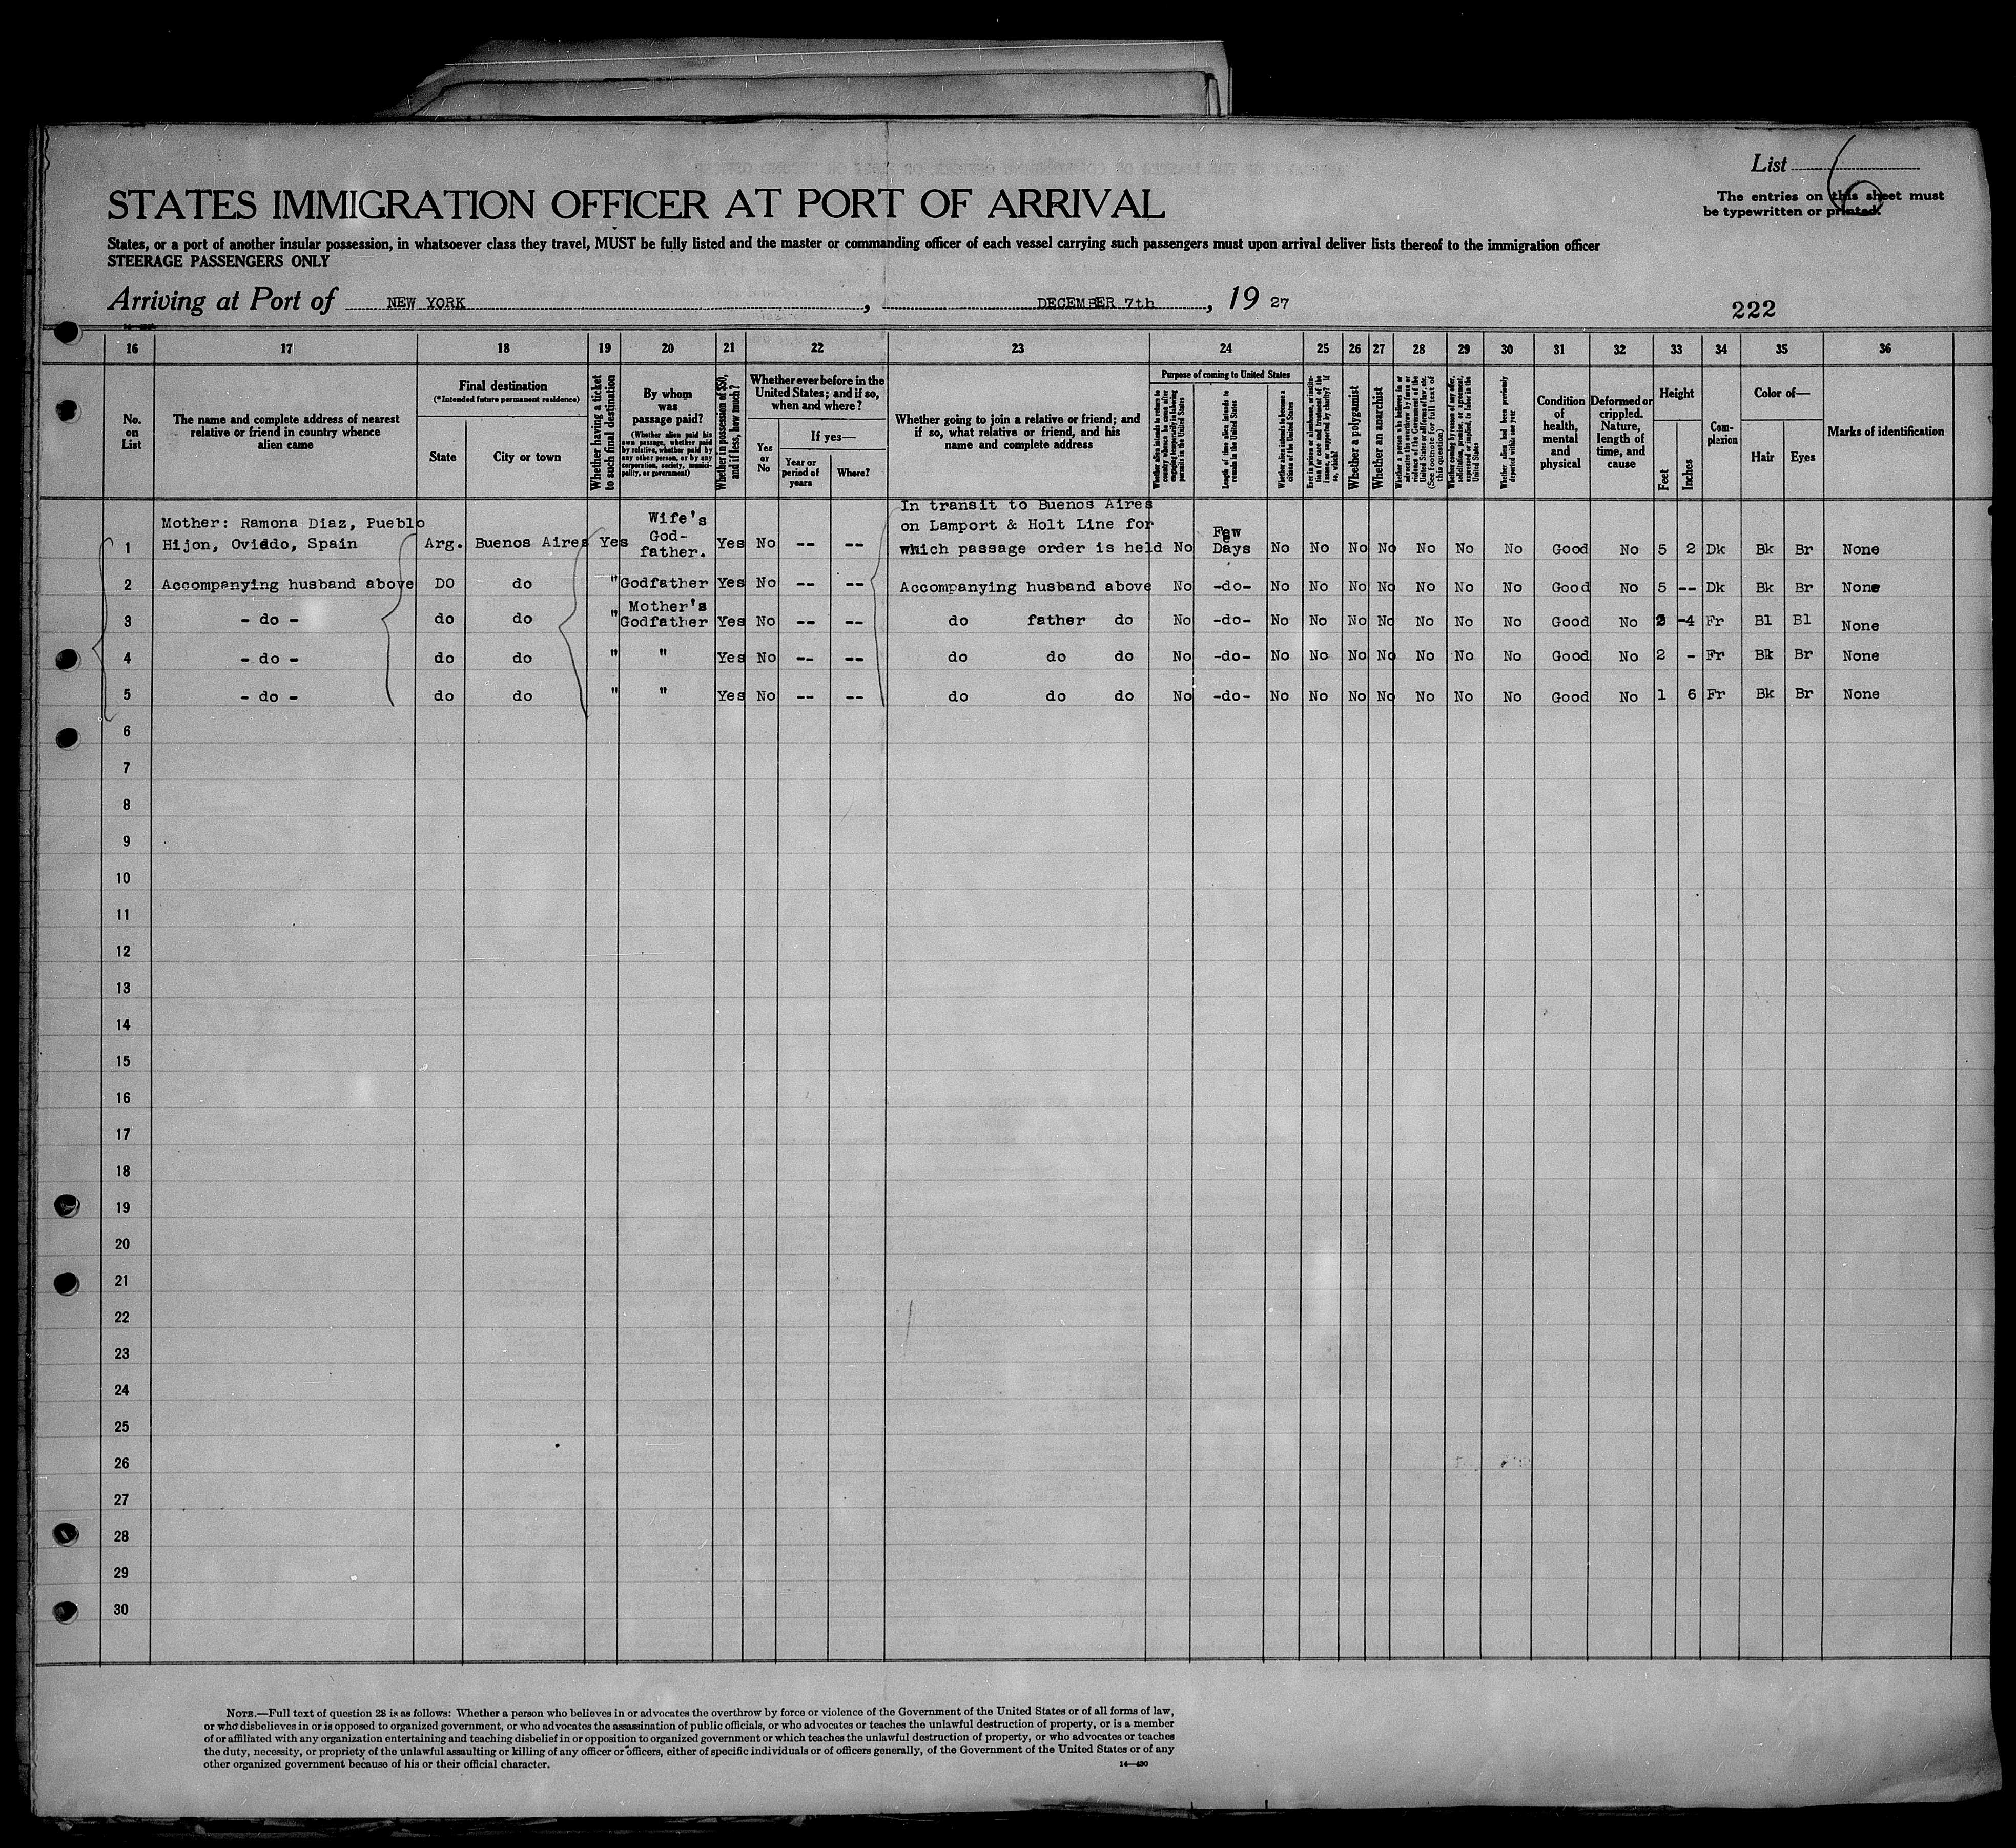 List
The entries on this sheet must
be typewritten or printed.
STATES IMMIGRATION OFFICER AT PORT OF ARRIVAL
States, or a port of another insular possession, in whatsoever class they travel, MUST be fully listed and the master or commanding officer of each vessel carrying such passengers must upon arrival deliver lists thereof to the immigration officer
STEERAGE PASSENGERS ONLY
Arriving at Port of NEW YORK, DECEMBER 7th, 19 27
222
16 17 18 19 20 21 22 23 24 25 26 27 28 29 30 31 32 33 34 35 36
No. on List
The name and complete address of nearest relative or friend in country whence alien came
Final destination
(*Intended future permanent residence)
State
City or town
Whether having a ticket to such final destination
By whom was passage paid?
(Whether alien paid his own passage, whether paid by relative, whether paid by any other person, or by any corporation, society, municipality, or government)
Whether in possession of $50, and if less, how much?
Whether ever before in the United States; and if so, when and where?
Yes or No
If yes—
Year or period of years
Where?
Whether going to join a relative or friend; and if so, what relative or friend, and his name and complete address
Purpose of coming to United States
Length of time alien intends to remain in the United States
Whether alien intends to become a citizen of the United States
Whether a polygamist
Whether an anarchist
Whether alien had been previously deported within one year
Condition of health, mental and physical
Deformed or crippled. Nature, length of time, and cause
Height
Feet
Inches
Complexion
Color of—
Hair
Eyes
Marks of identification
1 Mother: Ramona Diaz, Pueblo Hijon, Oviedo, Spain Arg. Buenos Aires Yes Wife's God-father. Yes No -- -- In transit to Buenos Aires on Lamport & Holt Line for which passage order is held No Few Days No No No No No No No Good No 5 2 Dk Bk Br None
2 Accompanying husband above DO do " Godfather Yes No -- -- Accompanying husband above No -do- No No No No No No No Good No 5 -- Dk Bk Br None
3 - do - do do " Mother's Godfather Yes No -- -- do father do No -do- No No No No No No No Good No -4 Fr Bl Bl None
4 - do - do do " " Yes No -- -- do do do No -do- No No No No No No No Good No 2 - Fr Bk Br None
5 - do - do do " " Yes No -- -- do do do No -do- No No No No No No No Good No 1 6 Fr Bk Br None
6
7
8
9
10
11
12
13
14
15
16
17
18
19
20
21
22
23
24
25
26
27
28
29
30
NOTE.—Full text of question 28 is as follows: Whether a person who believes in or advocates the overthrow by force or violence of the Government of the United States or of all forms of law,
or who disbelieves in or is opposed to organized government, or who advocates the assassination of public officials, or who advocates or teaches the unlawful destruction of property, or is a member
of or affiliated with any organization entertaining and teaching disbelief in or opposition to organized government or which teaches the unlawful destruction of property, or who advocates or teaches
the duty, necessity, or propriety of the unlawful assaulting or killing of any officer or officers, either of specific individuals or of officers generally, of the Government of the United States or of any
other organized government because of his or their official character.
14—430